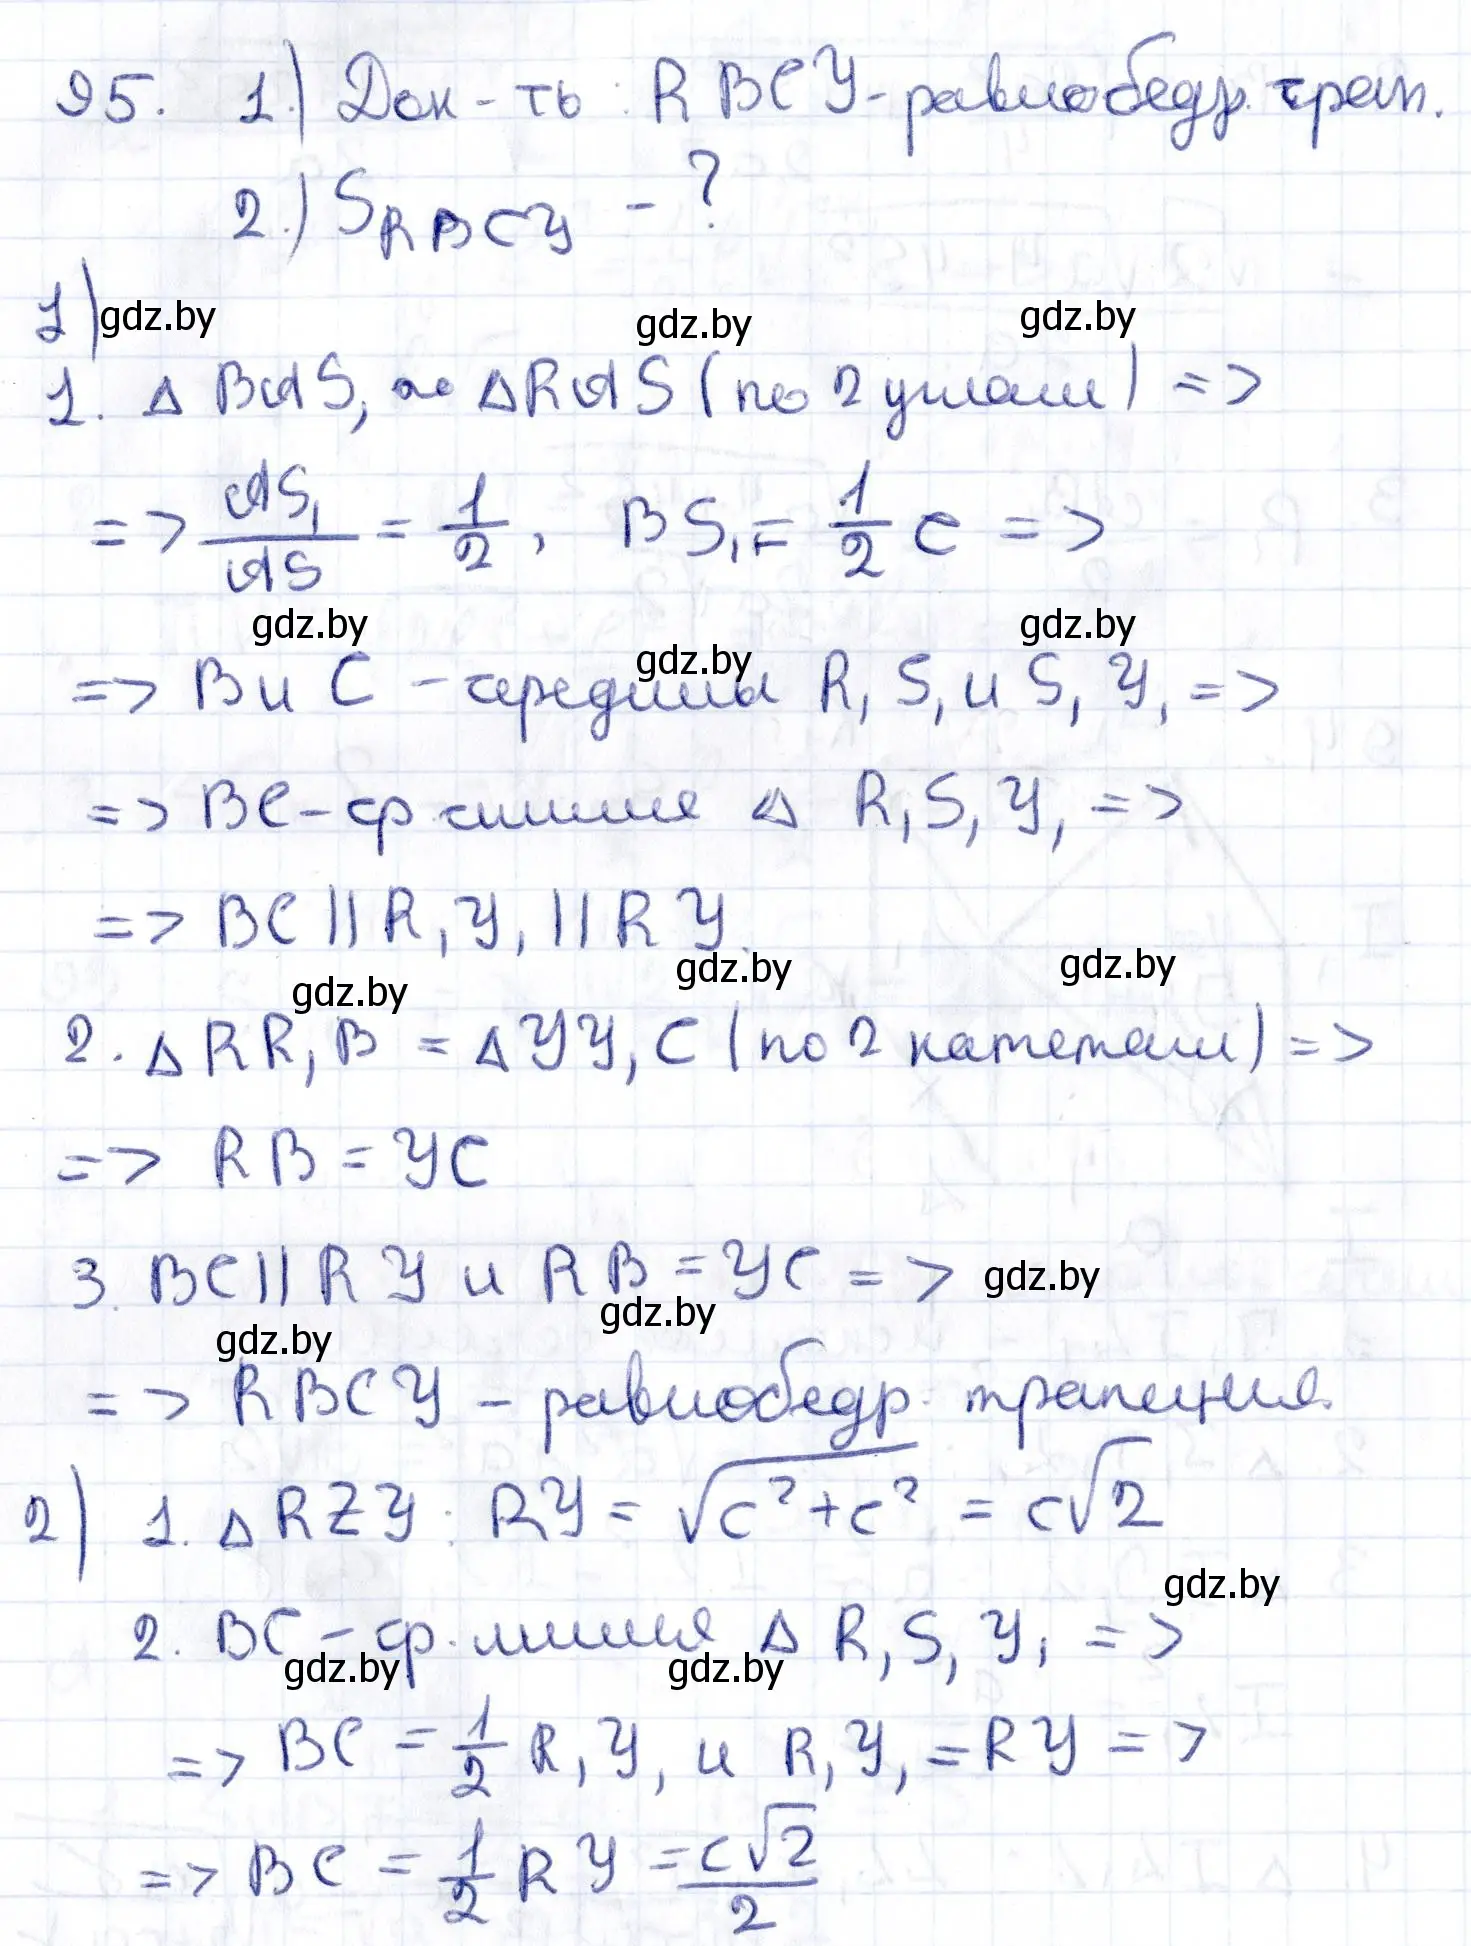 95. 1.) Док-ть: RBCY - равнобедр. трап.
2.) S_RBCY - ?
1)
gdz.by gdz.by gdz.by
1. △ BAS₁ ~ △RAS (по 2 углам) =>
=> AS₁/AS = 1/2, BS₁ = 1/2 c =>
gdz.by gdz.by gdz.by
=> B и C - середины R₁S₁ и S₁Y₁ =>
=> BC - ср линия △ R₁S₁Y₁ =>
=> BC || R₁Y₁ || RY.
gdz.by gdz.by gdz.by
2. △RR₁B = △YY₁C (по 2 катетам) =>
=> RB = YC
3. BC || RY и RB = YC => gdz.by
gdz.by gdz.by
=> RBCY - равнобедр. трапеция.
2) 1. △RZY: RY = √(c² + c²) = c√2
gdz.by
2. BC - ср. линия △ R₁S₁Y₁ =>
gdz.by gdz.by
=> BC = 1/2 R₁Y₁ и R₁Y₁ = RY =>
=> BC = 1/2 RY = c√2/2